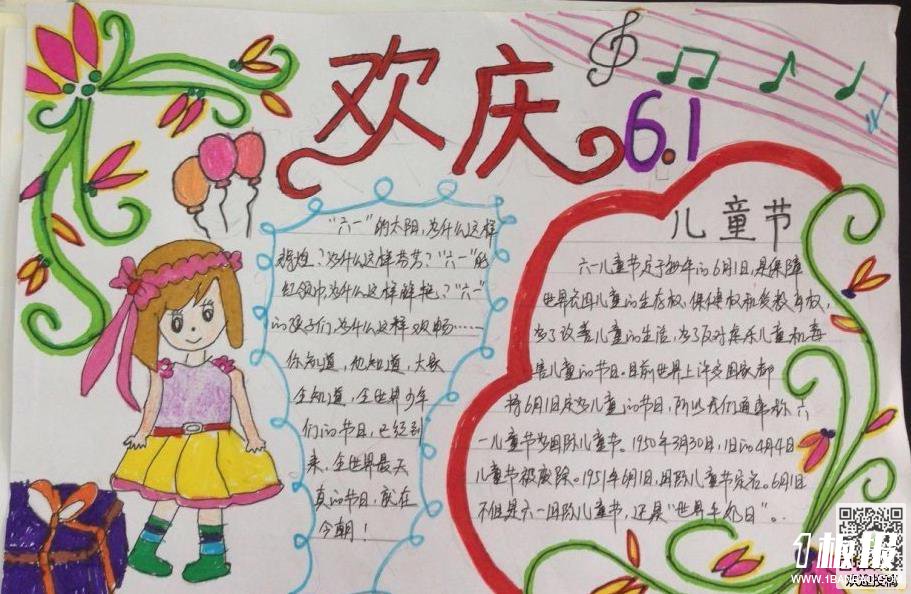 欢庆
6.1
"六一"的太阳，为什么这样
辉煌？为什么这样芬芳？"六一"的
红领巾为什么这样鲜艳？"六一"
的孩子们，为什么这样欢畅……
你知道，他知道，大家
全知道，全世界少年
们的节日，已经到
来，全世界最天
真的节日，就在
今朝！
儿童节
六一儿童节定于每年的6月1日，是保障
世界各国儿童的生存权、保健权和受教育权，
为了改善儿童的生活，为了反对虐杀儿童和毒
害儿童的节日。目前世界上许多国家都
将6月1日定为儿童的节日，所以我们通常称六
一儿童节为国际儿童节。1950年3月30日，旧的4月4日
儿童节被废除。1951年6月1日，国际儿童节定名。6月1日
不但是六一国际儿童节，还是"世界牛奶日"。
1板报
WWW.1BANBAO.COM
欢迎投稿